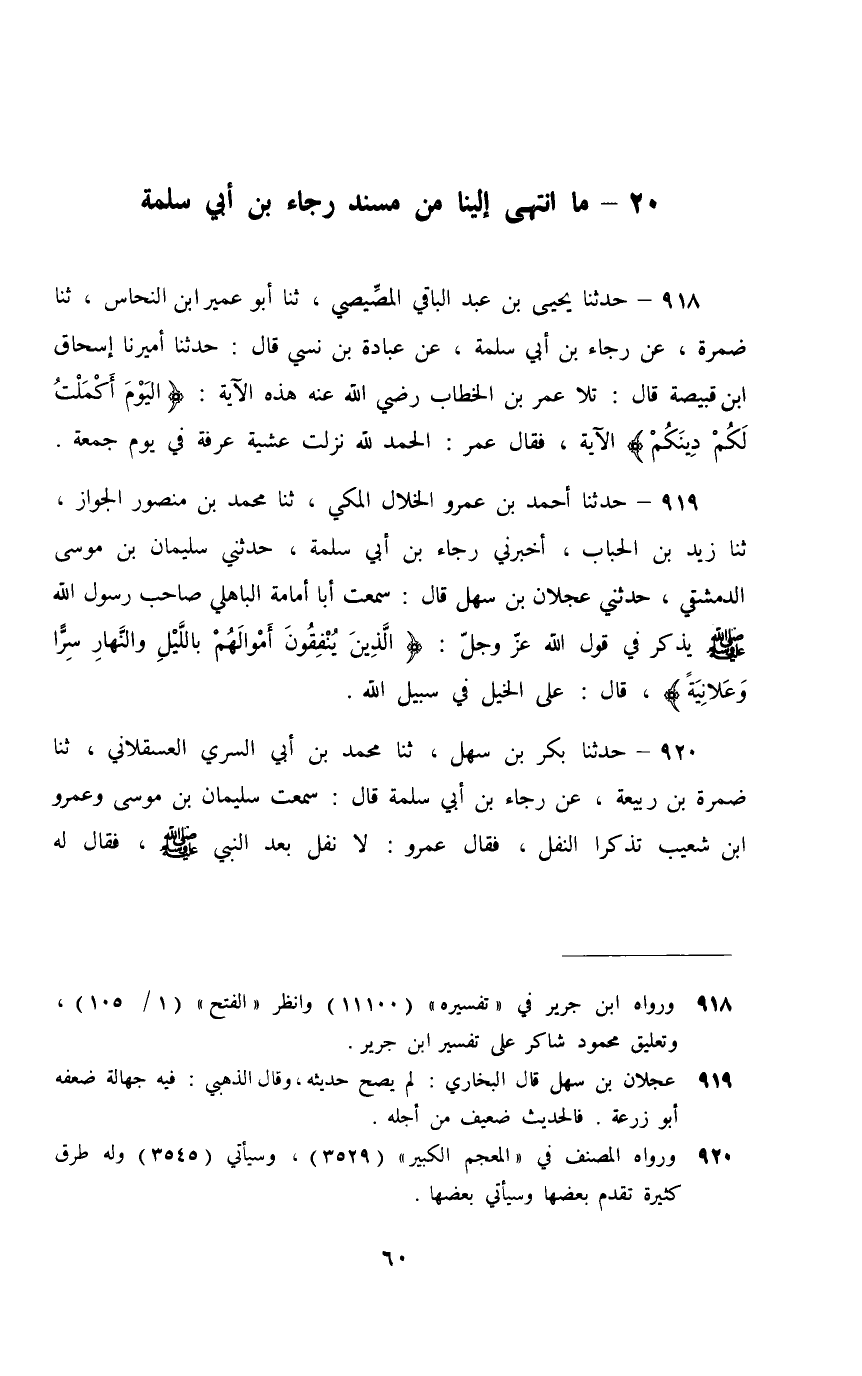 ٢٠ – ما انتهى إلينا من مسند رجاء بن أبي سلمة
٩١٨ – حدثنا يحيى بن عبد الباقي المصِّيصي ، ثنا أبو عمير ابن النحاس ، ثنا
ضمرة ، عن رجاء بن أبي سلمة ، عن عبادة بن نسي قال : حدثنا أميرنا إسحاق
ابن قبيصة قال : تلا عمر بن الخطاب رضي الله عنه هذه الآية : ﴿ اليَوْمَ أَكْمَلْتُ
لَكُمْ دِينَكُمْ ﴾ الآية ، فقال عمر : الحمد لله نزلت عشية عرفة في يوم جمعة .
٩١٩ – حدثنا أحمد بن عمرو الخلال المكي ، ثنا محمد بن منصور الجواز ،
ثنا زيد بن الحباب ، أخبرني رجاء بن أبي سلمة ، حدثني سليمان بن موسى
الدمشقي ، حدثني عجلان بن سهل قال : سمعت أبا أمامة الباهلي صاحب رسول الله
ﷺ يذكر في قول الله عزّ وجلّ : ﴿ الَّذِينَ يُنْفِقُونَ أَمْوالَهُمْ باللَّيْلِ والنَّهارِ سِرًّا
وَعَلانِيَةً ﴾ ، قال : على الخيل في سبيل الله .
٩٢٠ – حدثنا بكر بن سهل ، ثنا محمد بن أبي السري العسقلاني ، ثنا
ضمرة بن ربيعة ، عن رجاء بن أبي سلمة قال : سمعت سليمان بن موسى وعمرو
ابن شعيب تذكرا النفل ، فقال عمرو : لا نفل بعد النبي ﷺ ، فقال له
٩١٨ ورواه ابن جرير في «تفسيره» (١١١٠٠) وانظر «الفتح» (١ / ١٠٥) ،
وتعليق محمود شاكر على تفسير ابن جرير .
٩١٩ عجلان بن سهل قال البخاري : لم يصح حديثه ، وقال الذهبي : فيه جهالة ضعفه
أبو زرعة . فالحديث ضعيف من أجله .
٩٢٠ ورواه المصنف في «المعجم الكبير» (٣٥٢٩) ، وسيأتي (٣٥٤٥) وله طرق
كثيرة تقدم بعضها وسيأتي بعضها .
٦٠